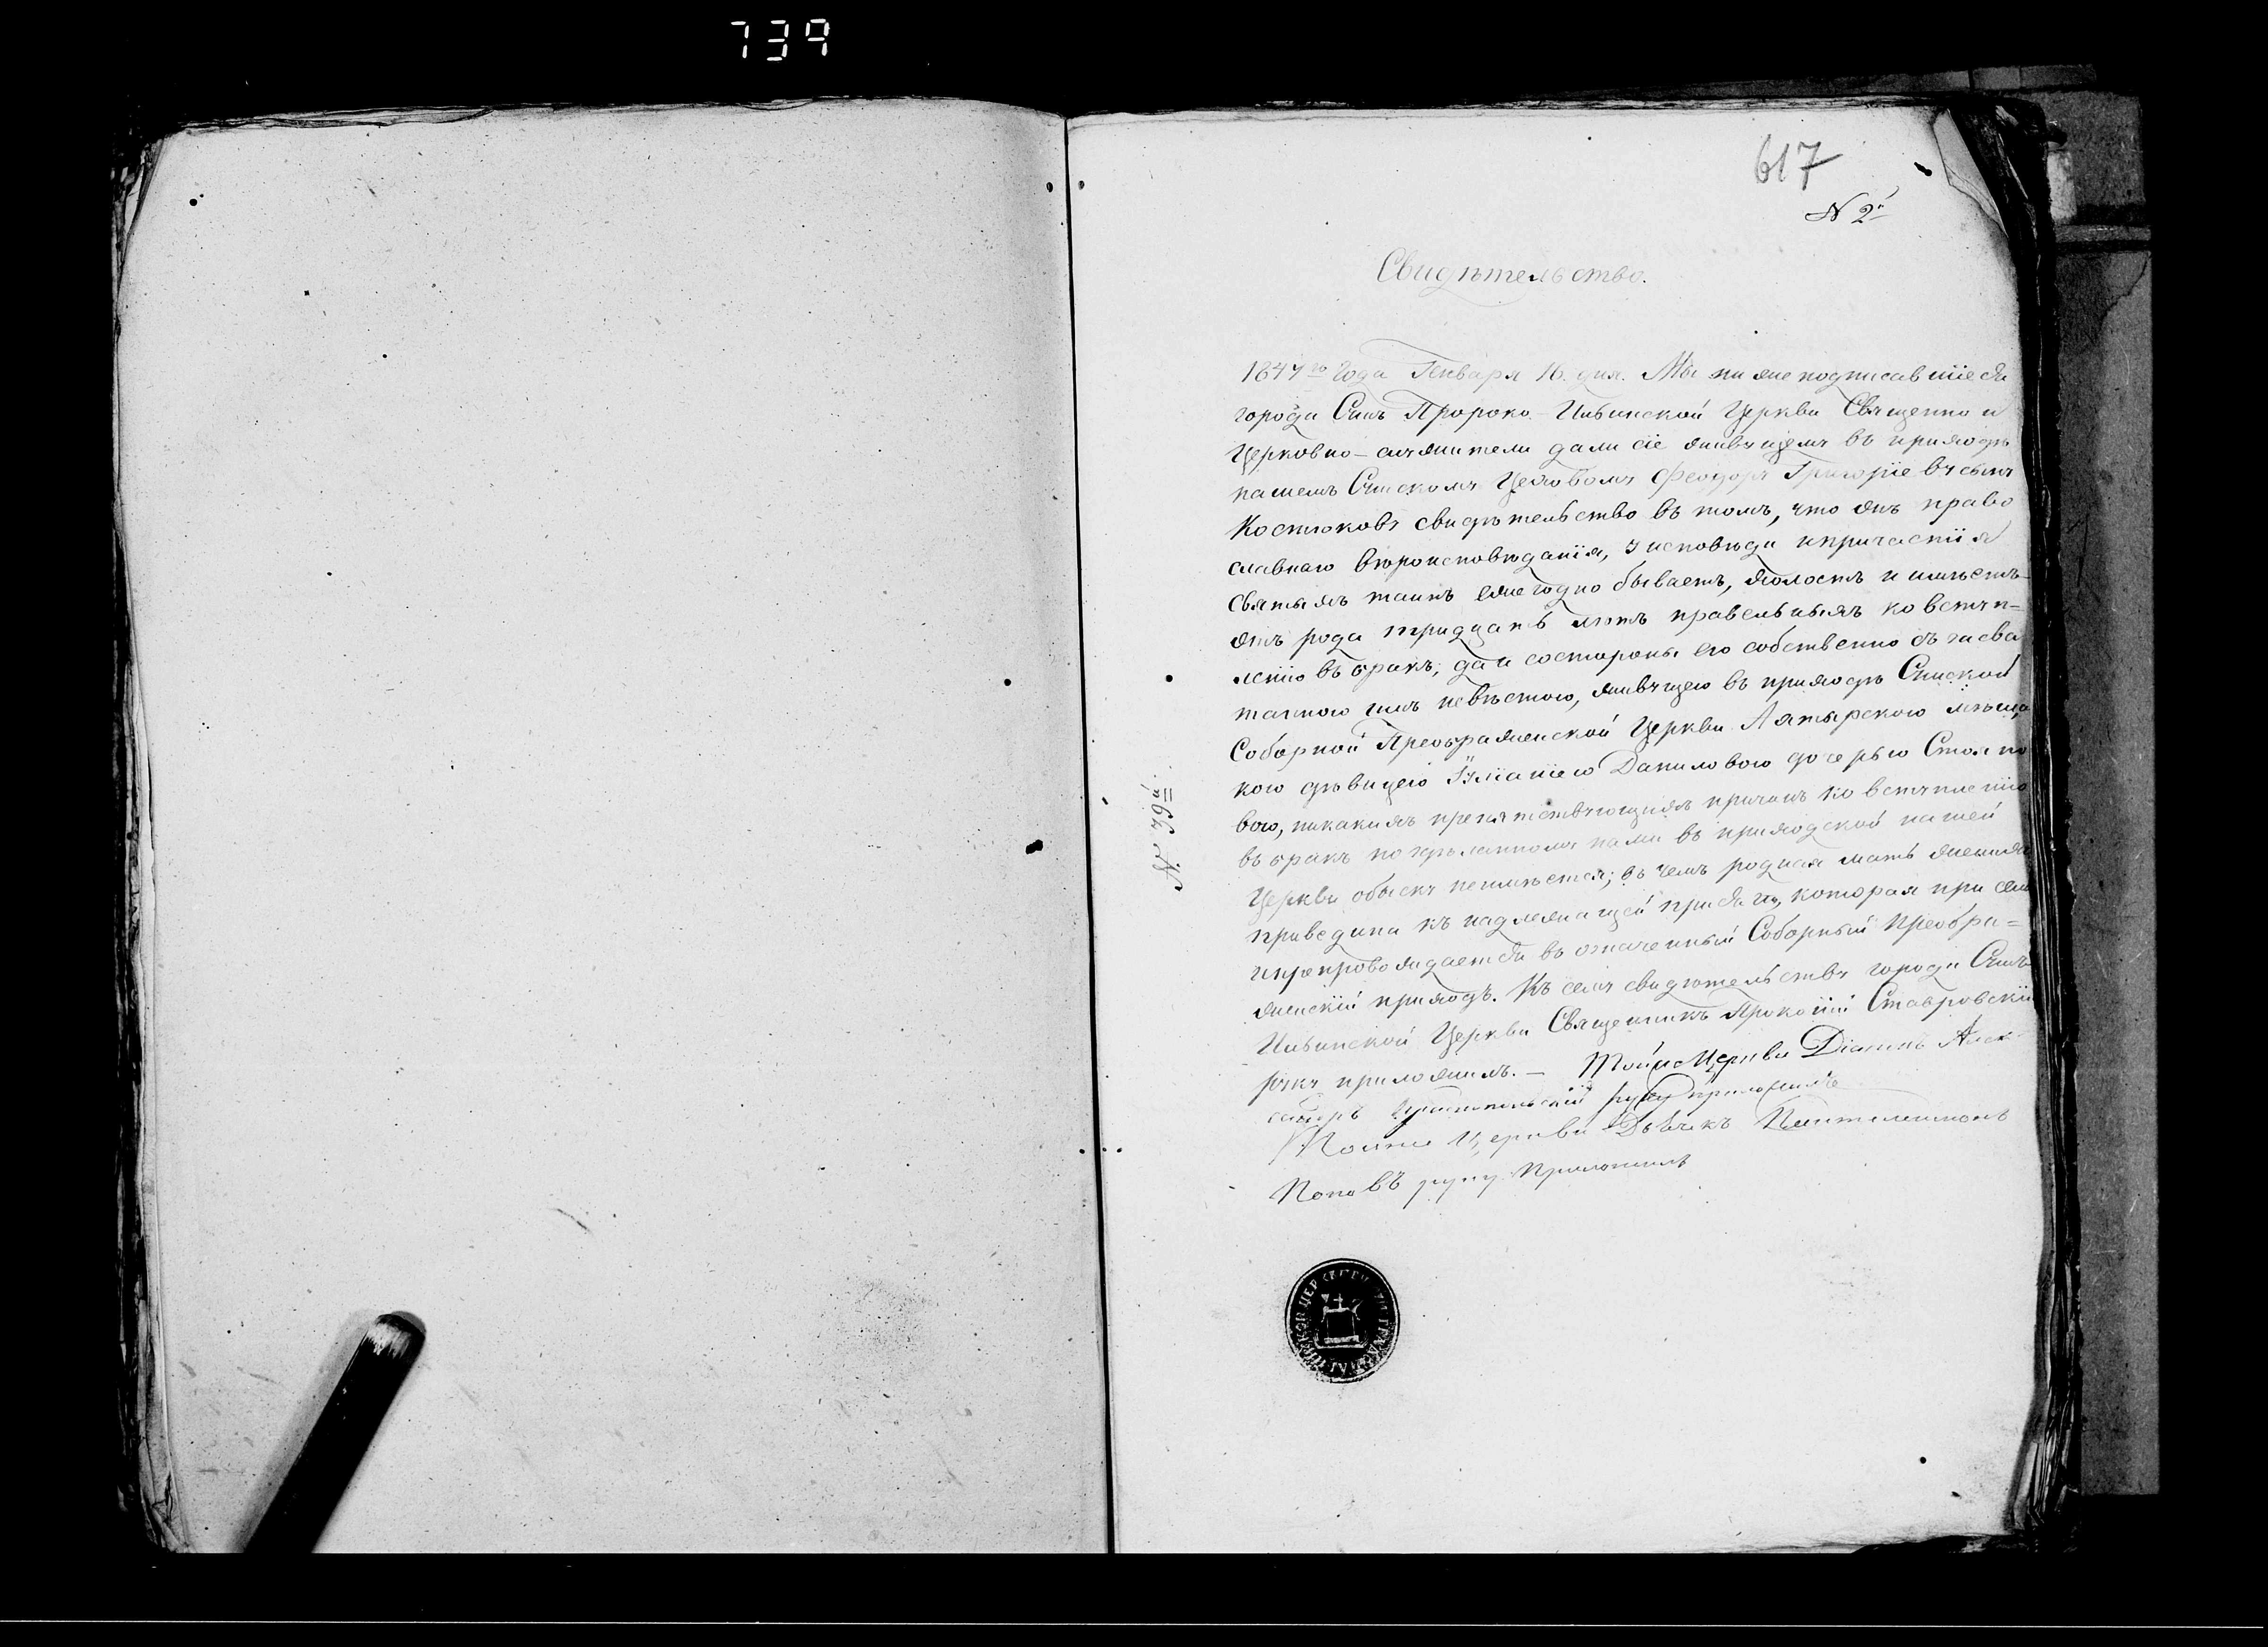 739
617
N 2й
Свидѣтельство.
1847го Года Генваря 16. дня. Мы ниже подписавшіеся
города Сум Пророко-Ильинской Церкви Священно и
Церковно-служители дали сіе живущему въ приходѣ
нашемъ Сумскому Цеховому Феодору Григоріеву сыну
Костюкову свидѣтельство въ томъ, что онъ право
славнаго вѣроисповѣданія, у исповѣди и причастія
святыхъ таинъ ежегодно бываетъ, холостъ и имѣетъ
отъ рода тридцать лѣтъ правельныхъ ко вступ-
ленію въ бракъ, да и состороны его собственно съ засва
танною имъ невѣстою, живущею въ приходѣ Сумской
Соборной Преображенской Церкви Ахтырского мѣщан
кою дѣвицею Уліаніею Даниловою дочерью
вою, никакихъ препятствующихъ причинъ ко вступленію
въ бракъ по здѣланному нами въ приходской нашей
Церкви обыску неимѣется; въ чемъ родная мать жениха
приведина къ надлежащей присягѣ, которая при семъ
и препровождается въ означенный Соборный Преобра=
женскій приходъ. Къ сему свидѣтельству города Сумъ
Ильинской Церкви Священникъ Прокопій Ставровскій
руку приложилъ. — Тойже Церкви Діаконъ Алек
сандръ руку приложилъ
Тойже Церкви Дьячекъ Пантелеимонъ
Поповъ руку приложилъ
№ 39й